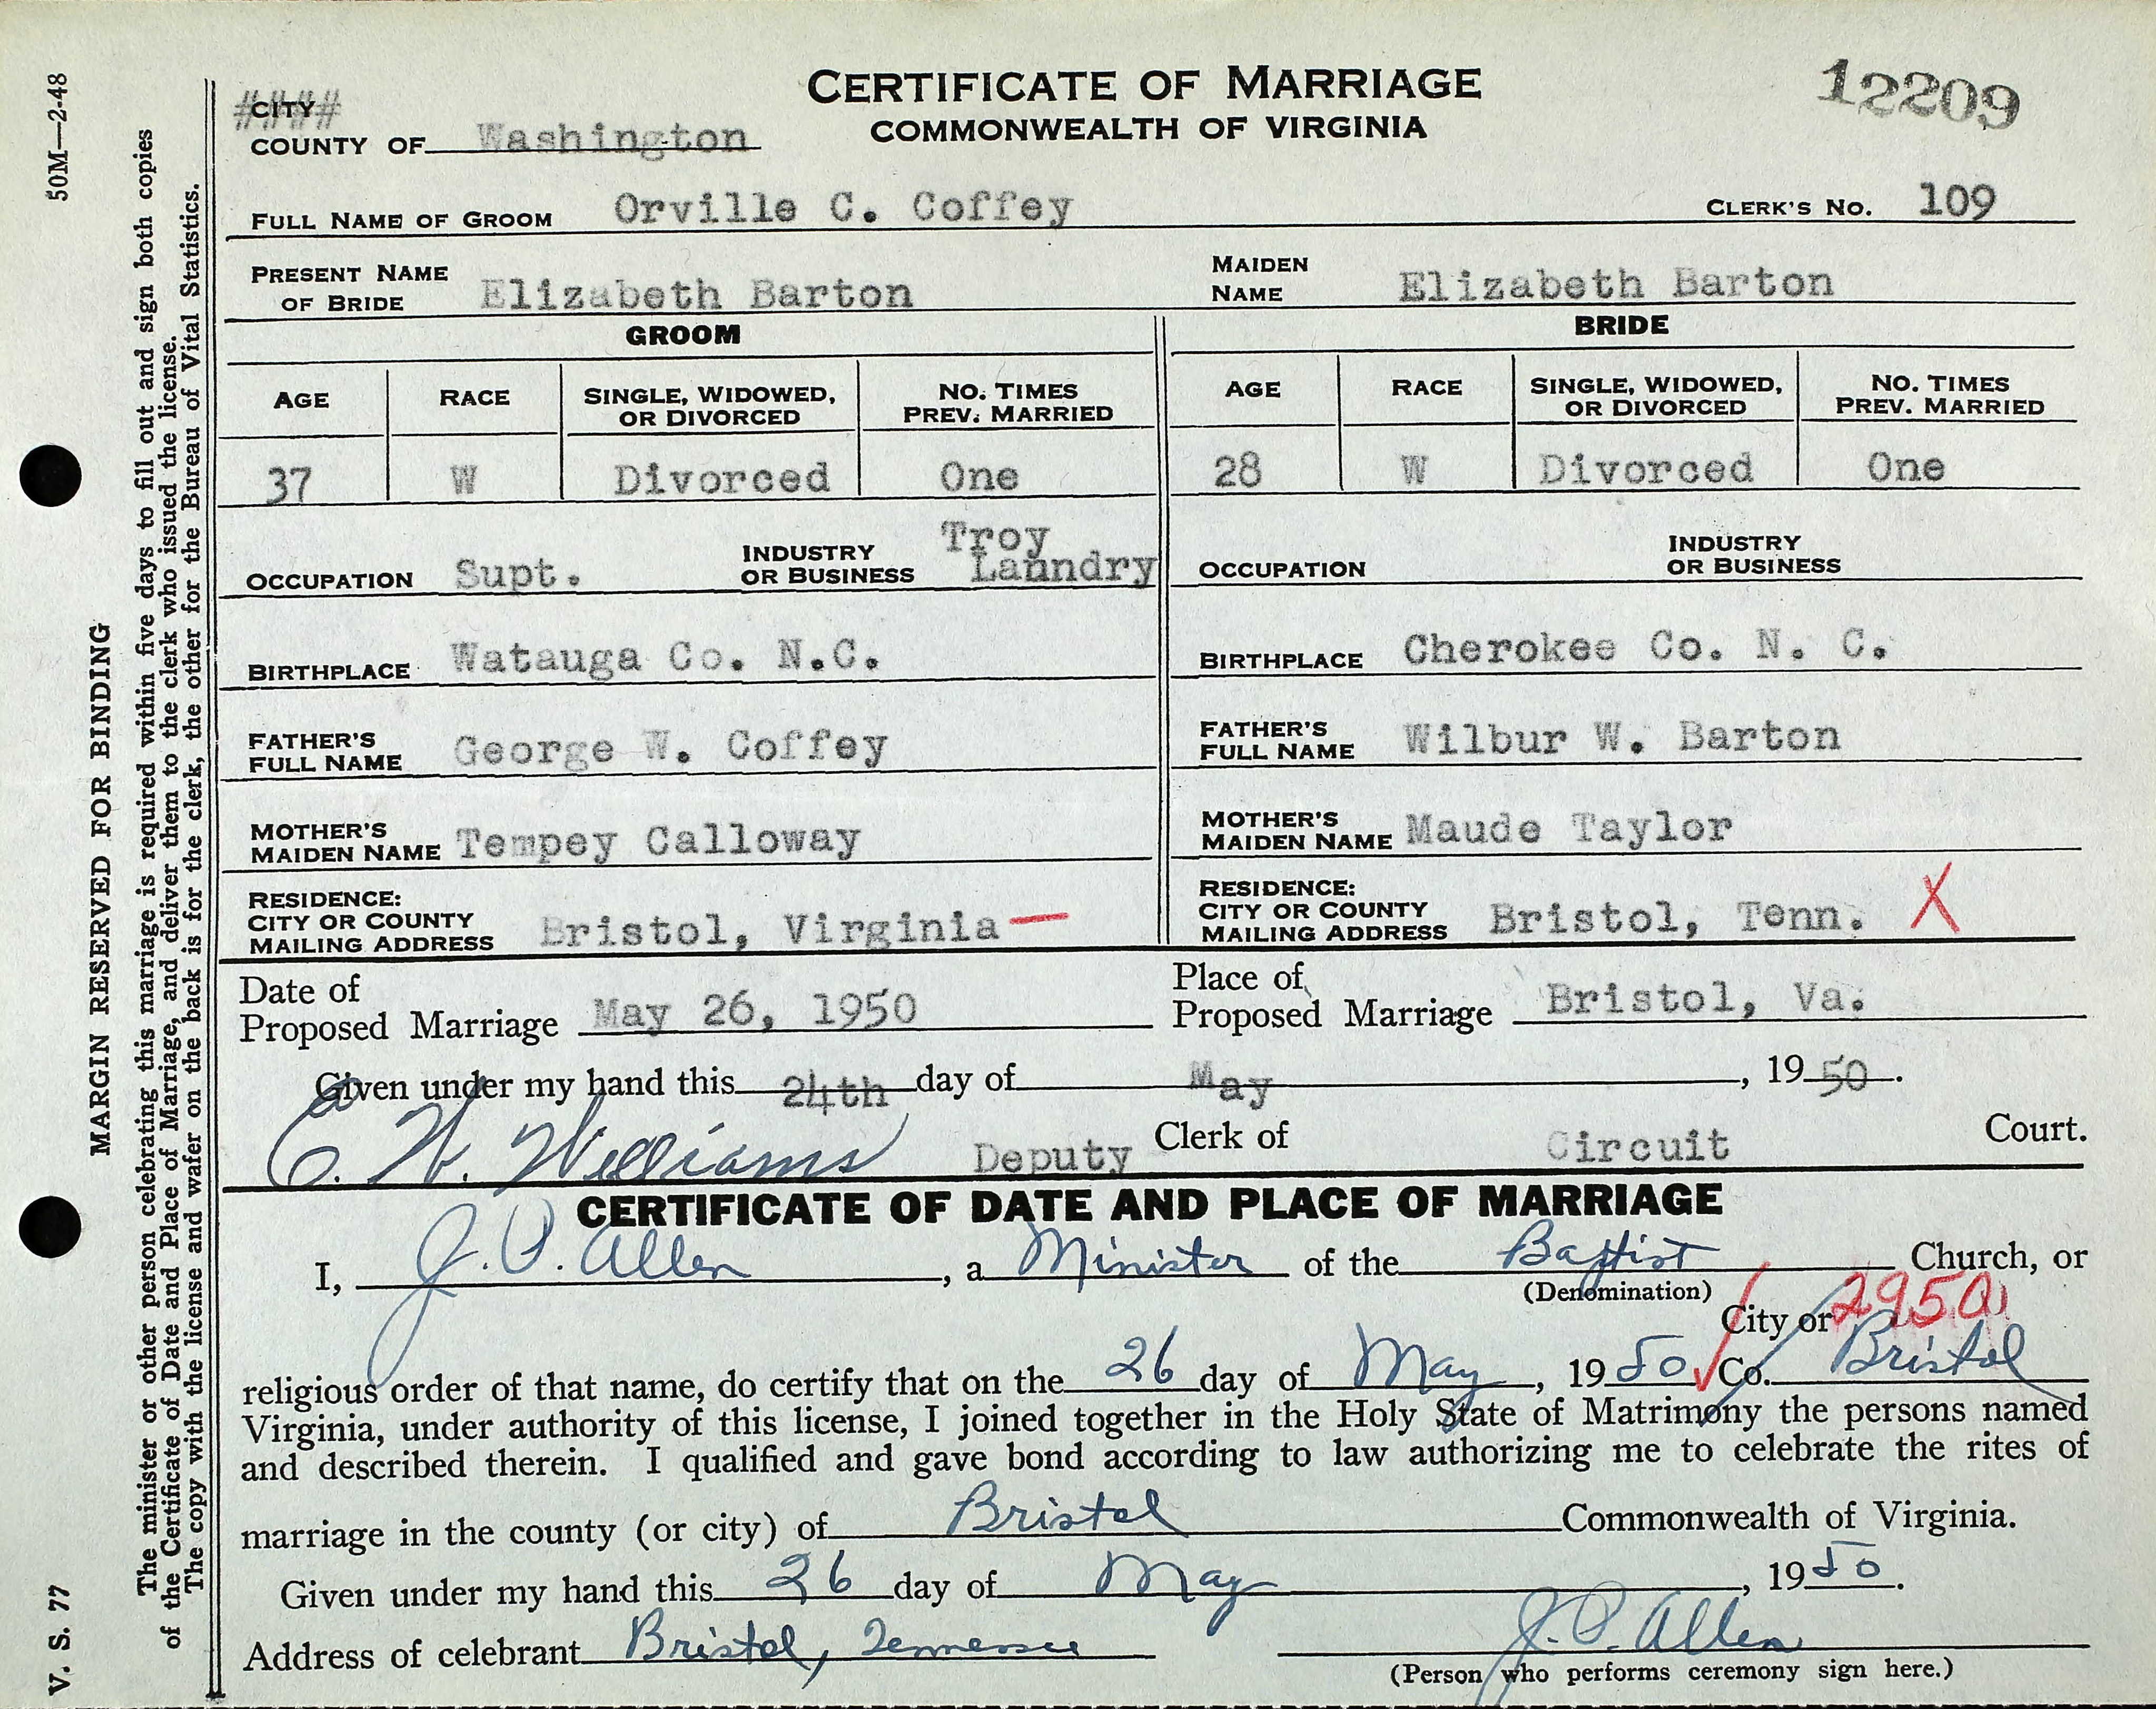 50M—2-48
MARGIN RESERVED FOR BINDING
V. S. 77
The minister or other person celebrating this marriage is required within five days to fill out and sign both copies
of the Certificate of Date and Place of Marriage, and deliver them to the clerk who issued the license.
The copy with the license and wafer on the back is for the clerk, the other for the Bureau of Vital Statistics.
CERTIFICATE OF MARRIAGE
COMMONWEALTH OF VIRGINIA
12209
####
CITY
COUNTY OF Washington
FULL NAME OF GROOM Orville C. Coffey CLERK'S NO. 109
PRESENT NAME
OF BRIDE Elizabeth Barton
MAIDEN
NAME Elizabeth Barton
GROOM
AGE RACE SINGLE, WIDOWED, OR DIVORCED NO. TIMES PREV. MARRIED
37 W Divorced One
OCCUPATION Supt. INDUSTRY OR BUSINESS Troy Lanndry
BIRTHPLACE Watauga Co. N.C.
FATHER'S
FULL NAME George W. Coffey
MOTHER'S
MAIDEN NAME Tempey Calloway
RESIDENCE:
CITY OR COUNTY
MAILING ADDRESS Bristol, Virginia —
BRIDE
AGE RACE SINGLE, WIDOWED, OR DIVORCED NO. TIMES PREV. MARRIED
28 W Divorced One
OCCUPATION INDUSTRY OR BUSINESS
BIRTHPLACE Cherokee Co. N. C.
FATHER'S
FULL NAME Wilbur W. Barton
MOTHER'S
MAIDEN NAME Maude Taylor
RESIDENCE:
CITY OR COUNTY
MAILING ADDRESS Bristol, Tenn. X
Date of
Proposed Marriage May 26, 1950
Place of
Proposed Marriage Bristol, Va.
Given under my hand this 24th day of May, 1950.
C. W. Williams Deputy Clerk of Circuit Court.
CERTIFICATE OF DATE AND PLACE OF MARRIAGE
I, J. P. Allen, a Minister of the Baptist Church, or
(Denomination)
City or 2950
religious order of that name, do certify that on the 26 day of May, 1950 Co. Bristol
Virginia, under authority of this license, I joined together in the Holy State of Matrimony the persons named
and described therein. I qualified and gave bond according to law authorizing me to celebrate the rites of
marriage in the county (or city) of Bristol Commonwealth of Virginia.
Given under my hand this 26 day of May, 1950.
Address of celebrant Bristol, Tennessee J. P. Allen
(Person who performs ceremony sign here.)